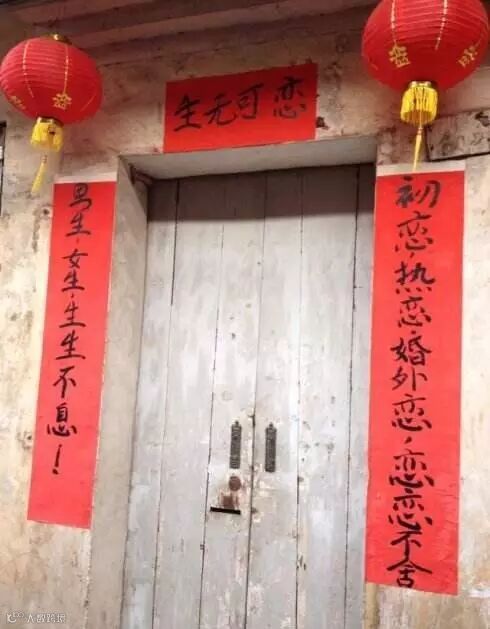 生无可恋
初恋、热恋、婚外恋、恋恋不舍
男生、女生、生生不息！
大数跨境